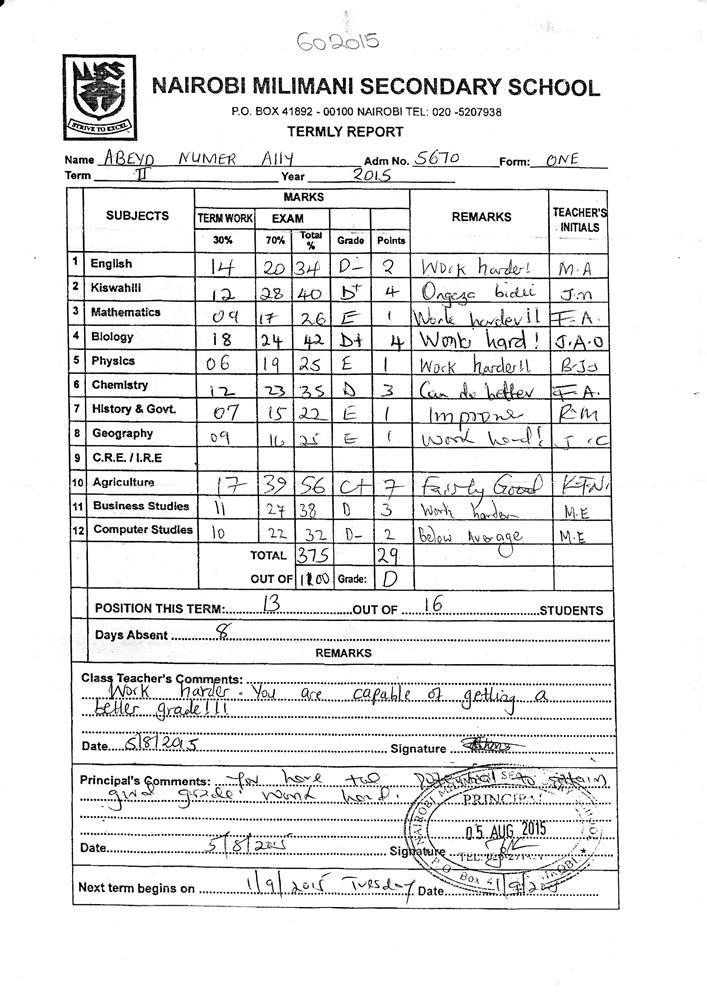 602015
STRIVE TO EXCEL
NAIROBI MILIMANI SECONDARY SCHOOL
P.O. BOX 41892 - 00100 NAIROBI TEL: 020 -5207938
TERMLY REPORT
Name ABEYD NUMER Ally Adm No. 5670 Form: ONE
Term II Year 2015
SUBJECTS MARKS REMARKS TEACHER'S INITIALS
TERM WORK EXAM
30% 70% Total % Grade Points
1 English 14 20 34 D- 2 Work harder! M.A
2 Kiswahili 12 28 40 D+ 4 Ongeza bidii J.M
3 Mathematics 09 17 26 E 1 Work harder!! F.A.
4 Biology 18 24 42 D+ 4 Work hard! J.A.O
5 Physics 06 19 25 E 1 Work harder!!
6 Chemistry 12 23 35 D 3 Can do better F.A.
7 History & Govt. 07 15 22 E 1 Improve R.M
8 Geography 09 16 25 E 1 Work hard!
9 C.R.E. / I.R.E
10 Agriculture 17 39 56 C+ 7 Fairly Good K.T.N.
11 Business Studies 11 27 38 D 3 Work harder M.E
12 Computer Studies 10 22 32 D- 2 Below Average M.E
TOTAL 375 29
OUT OF 1100 Grade: D
POSITION THIS TERM: 13 OUT OF 16 STUDENTS
Days Absent 8
REMARKS
Class Teacher's Comments:
Work harder. You are capable of getting a
better grade!!!
Date 5/8/2015 Signature
Principal's Comments: You have the potential to attain
good grade work hard.
PRINCIPAL
05 AUG 2015
Date 5/8/2015 Signature
Next term begins on 1/9/2015 Tuesday Date